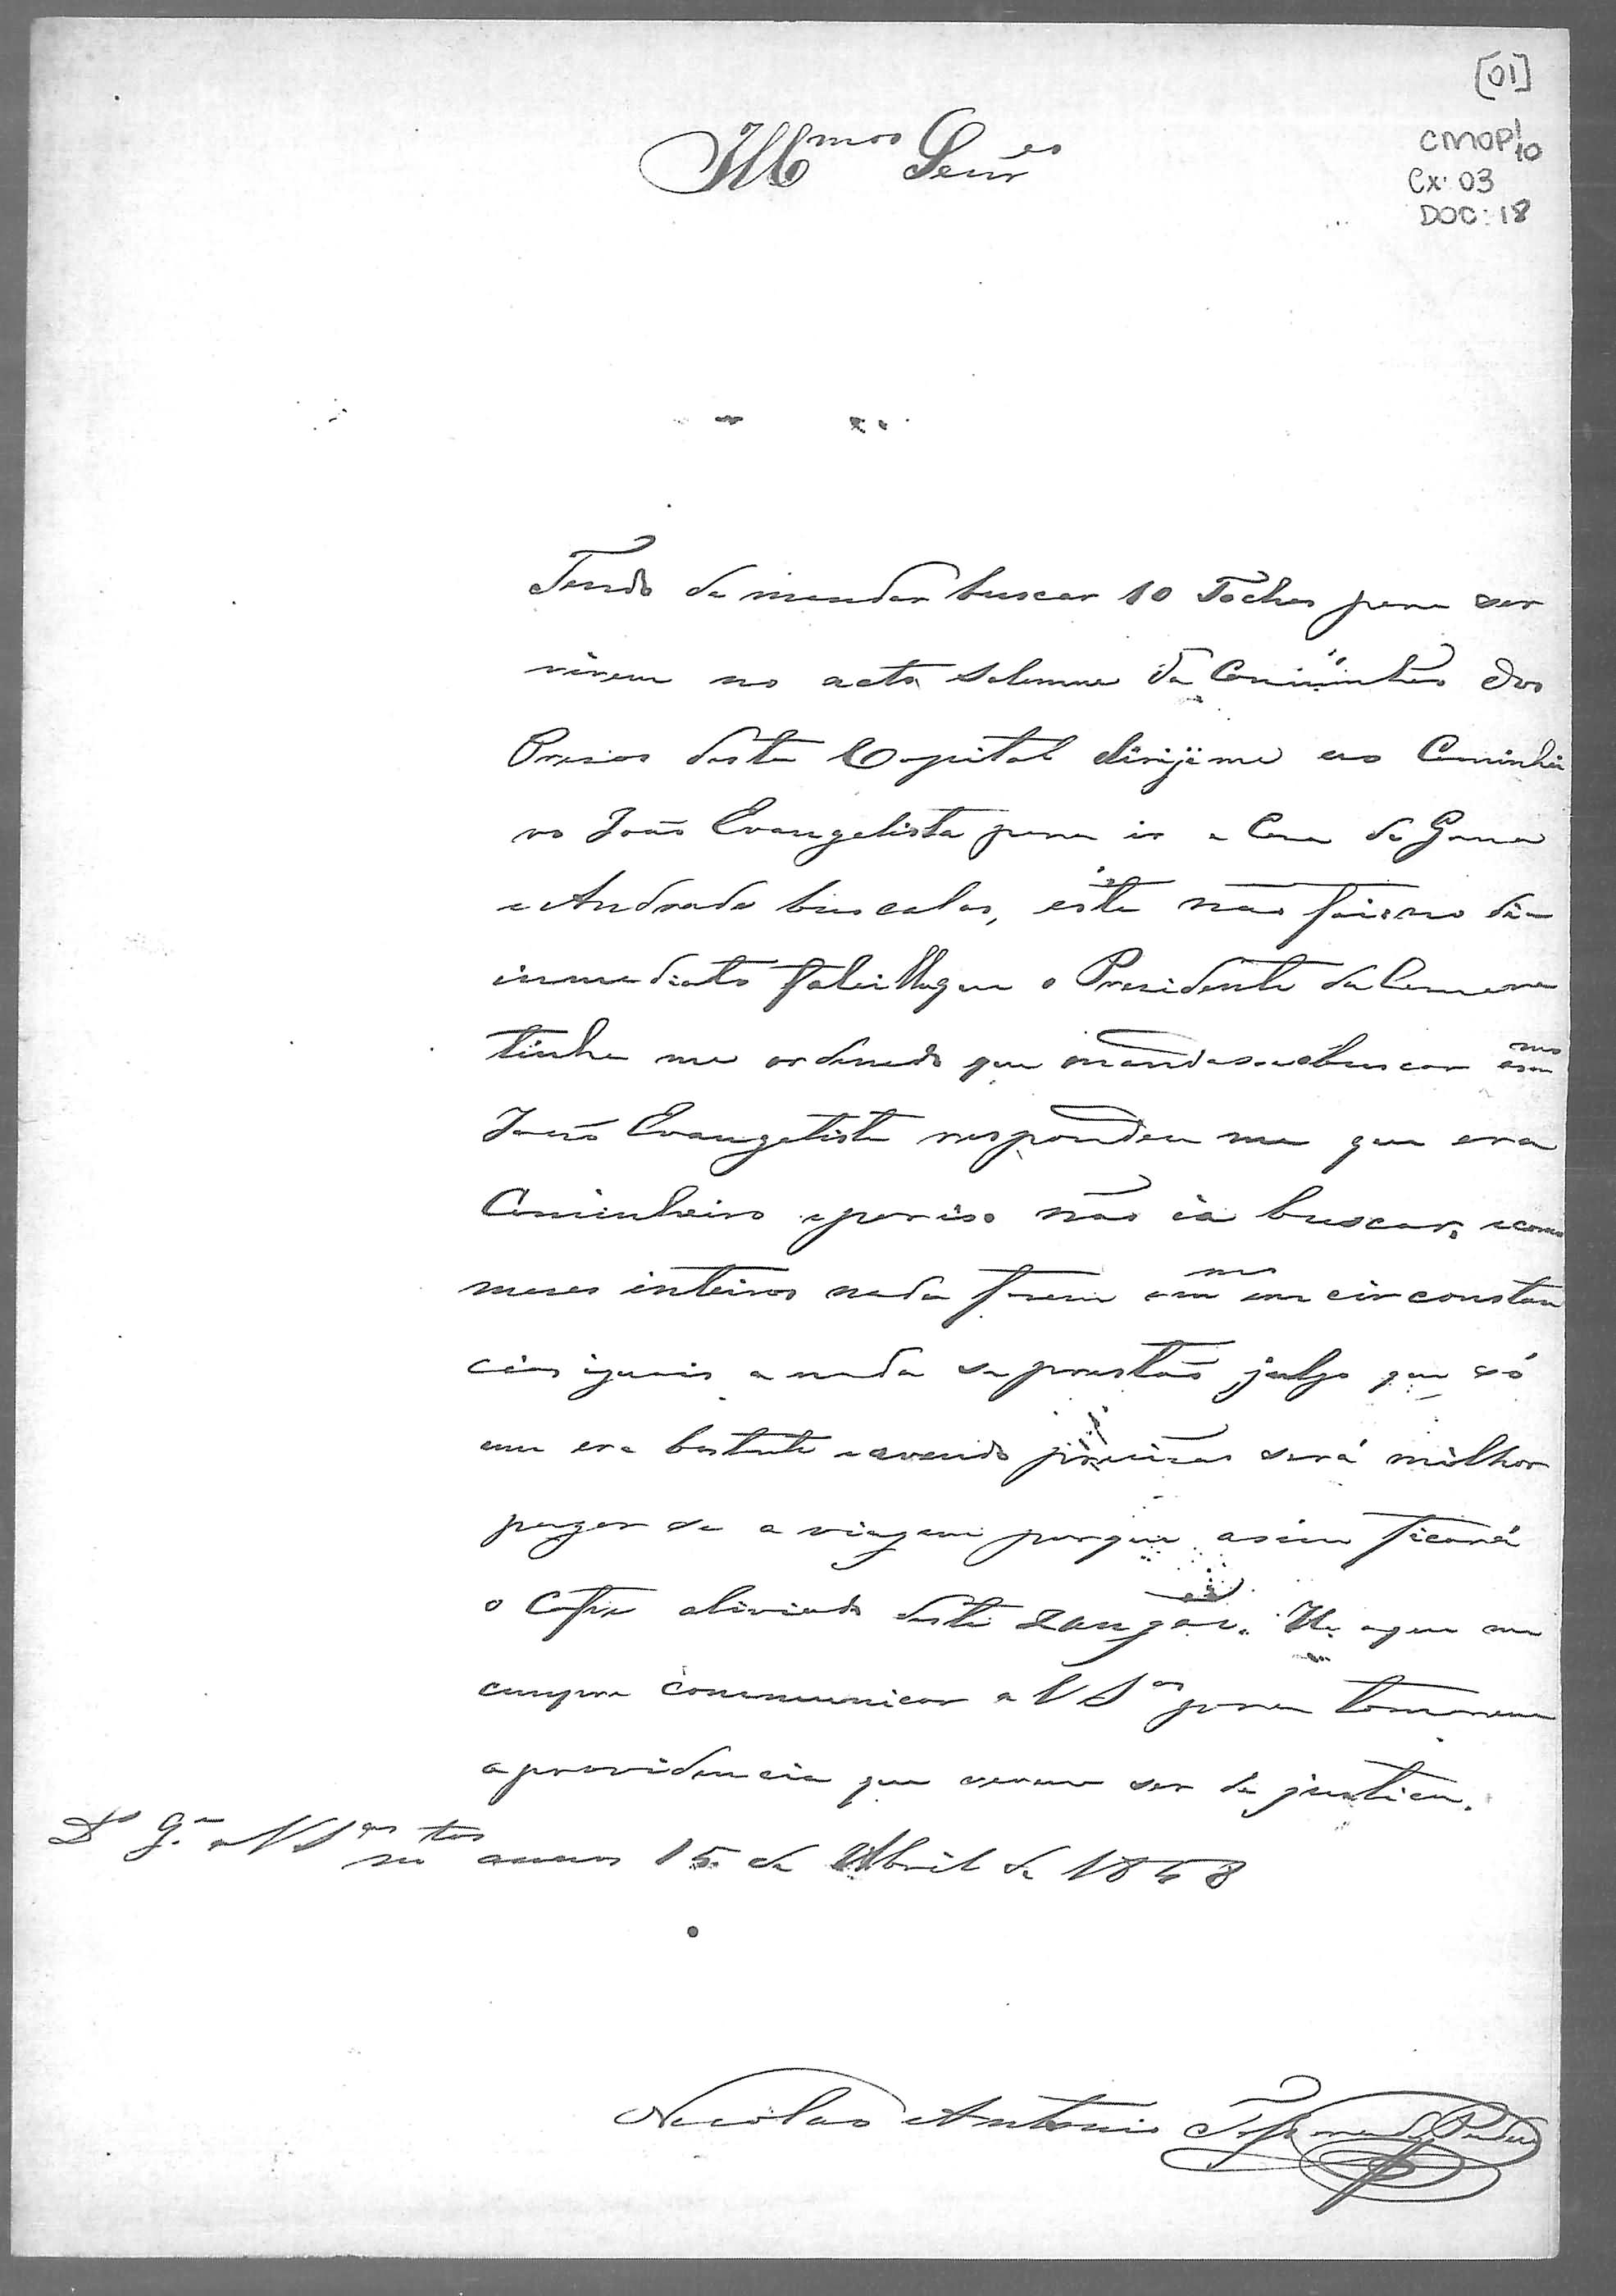 [01]
CMOP 1/10
Cx: 03
DOC: 18
Illmos Senres
Tendo de mandar buscar 10 Tochas para ser
virem no acto solemne da Comunhão dos
Presos desta Capital dirijime ao Caminhei
ro João Evangelista para ir a Casa de Gama
e Andrade buscalas, este não foi: no dia
immediato falei lhe que o Presidente da Camera
tinha me ordenado que mandasse buscar esmo
João Evangelista respondeu me que era
Caminheiro e por iso não ia buscar, e como
meses inteiros nada fasem e mmo em circonstan
cias iguais a nada se prestão julgo que só
um era bastante e avendo precizão será milhor
pagar se a viagem porque asim ficará
o Cofre aliviado deste zangão. He o que me
cumpre communicar a V Sas para tomarem
a providencia que verem ser de justica.
Ds Ge a V Sas ms anos 15 de Abril de 1848
Nicolao Antonio de Padua